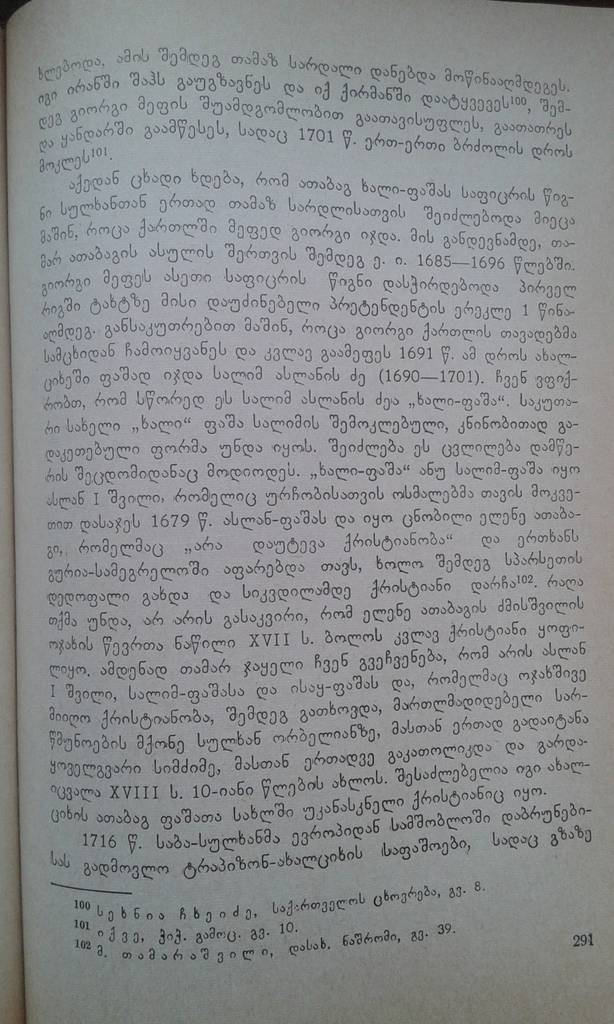 ხლებოდა. ამის შემდეგ თამაზ სარდალი დანებდა მოწინააღმდეგეს.
იგი ირანში შაჰს გაუგზავნეს და იქ ქირმანში დაატყვევეს¹⁰⁰, შემ-
დეგ გიორგი მეფის შუამდგომლობით გაათავისუფლეს, გაათათრეს
და ყანდარში გაამწესეს, სადაც 1701 წ. ერთ-ერთი ბრძოლის დროს
მოკლეს¹⁰¹.
აქედან ცხადი ხდება, რომ ათაბაგ ხალი-ფაშას საფიცრის წიგ-
ნი სულხანთან ერთად თამაზ სარდლისათვის შეიძლებოდა მიეცა
მაშინ, როცა ქართლში მეფედ გიორგი იჯდა. მის განდევნამდე, თა-
მარ ათაბაგის ასულის შერთვის შემდეგ ე. ი. 1685—1696 წლებში.
გიორგი მეფეს ასეთი საფიცრის წიგნი დასჭირდებოდა პირველ
რიგში ტახტზე მისი დაუძინებელი პრეტენდენტის ერეკლე 1 წინა-
აღმდეგ. განსაკუთრებით მაშინ, როცა გიორგი ქართლის თავადებმა
სამცხიდან ჩამოიყვანეს და კვლავ გაამეფეს 1691 წ. ამ დროს ახალ-
ციხეში ფაშად იჯდა სალიმ ასლანის ძე (1690—1701). ჩვენ ვფიქ-
რობთ, რომ სწორედ ეს სალიმ ასლანის ძეა „ხალი-ფაშა“. საკუთა-
რი სახელი „ხალი“ ფაშა სალიმის შემოკლებული, კნინობითად გა-
დაკეთებული ფორმა უნდა იყოს. შეიძლება ეს ცვლილება დამწე-
რის შეცდომიდანაც მოდიოდეს. „ხალი-ფაშა“ ანუ სალიმ-ფაშა იყო
ასლან I შვილი, რომელიც ურჩობისათვის ოსმალებმა თავის მოკვე-
თით დასაჯეს 1679 წ. ასლან-ფაშას და იყო ცნობილი ელენე ათაბა-
გი, რომელმაც „არა დაუტევა ქრისტიანობა“ და ერთხანს
გურია-სამეგრელოში აფარებდა თავს, ხოლო შემდეგ სპარსეთის
დედოფალი გახდა და სიკვდილამდე ქრისტიანი დარჩა¹⁰². რაღა
თქმა უნდა, არ არის გასაკვირი, რომ ელენე ათაბაგის ძმისშვილის
ოჯახის წევრთა ნაწილი XVII ს. ბოლოს კვლავ ქრისტიანი ყოფი-
ლიყო. ამდენად თამარ ჯაყელი ჩვენ გვეჩვენება, რომ არის ასლან
I შვილი, სალიმ-ფაშასა და ისაყ-ფაშას და, რომელმაც ოჯახშივე
მიიღო ქრისტიანობა, შემდეგ გათხოვდა, მართლმადიდებელი სარ-
წმუნოების მქონე სულხან ორბელიანზე, მასთან ერთად გადაიტანა
ყოველგვარი სიმძიმე, მასთან ერთადვე გაკათოლიკდა და გარდა-
იცვალა XVIII ს. 10-იანი წლების ახლოს. შესაძლებელია იგი ახალ-
ციხის ათაბაგ ფაშათა სახლში უკანასკნელი ქრისტიანიც იყო.
1716 წ. საბა-სულხანმა ევროპიდან სამშობლოში დაბრუნები-
სას გადმოვლო ტრაპიზონ-ახალციხის საფაშოები, სადაც გზაზე
¹⁰⁰ სეხნია ჩხეიძე, საქართველოს ცხოვრება, გვ. 8.
¹⁰¹ იქვე, ჭიჭ. გამოც. გვ. 10.
¹⁰² მ. თამარაშვილი, დასახ. ნაშრომი, გვ. 39.
291